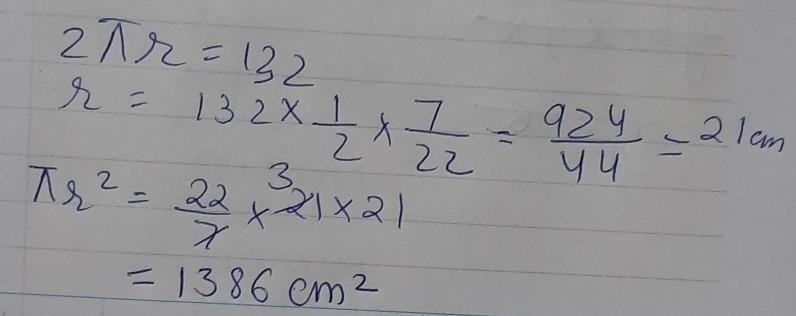 2πr = 132
r = 132 × 1/2 × 7/22 = 924/44 = 21cm
πr² = 22/7 × 3 21 × 21
= 1386 cm²